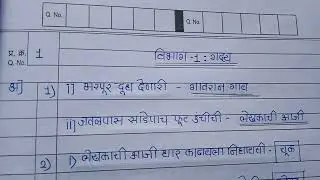 Q. No. Q. No.
प्र. क्र. Q. No. 1 विभाग-1 : गद्य
अ) 1) i) भरपूर दूध देणारी - गावरान गाय
ii) जवळपास साडेपाच फूट उंचीची - लेखकाची आजी
2) i) लेखकाची आजी धार काढायला निघायची - चूक